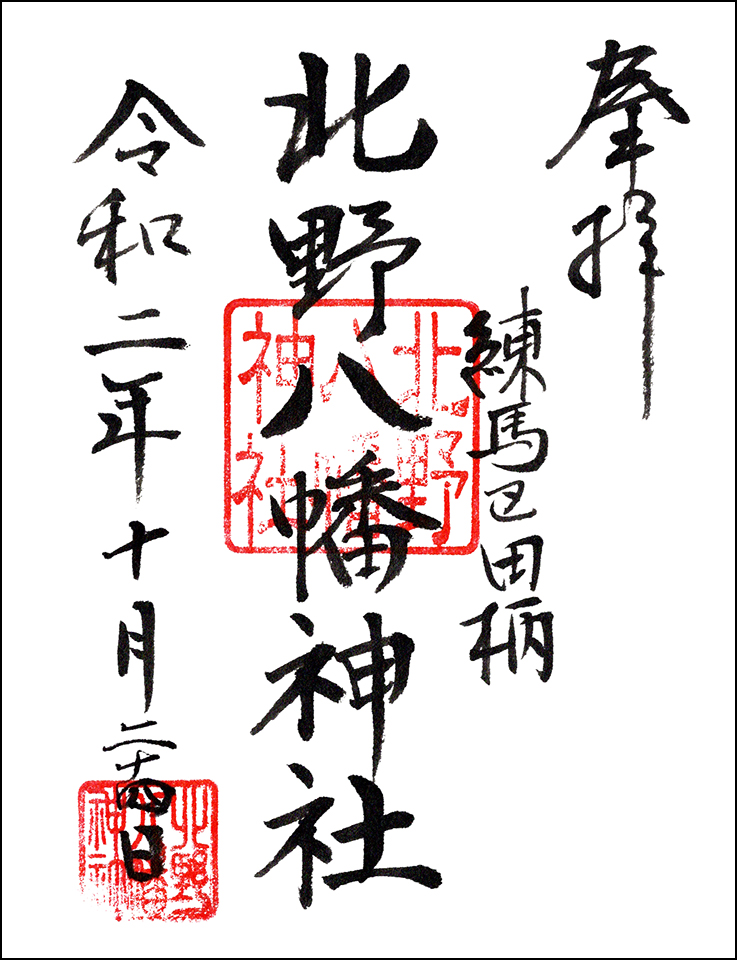 奉拝
練馬区田柄
北野八幡神社
北野
八幡
神社
令和二年十月二十四日
北野
神印